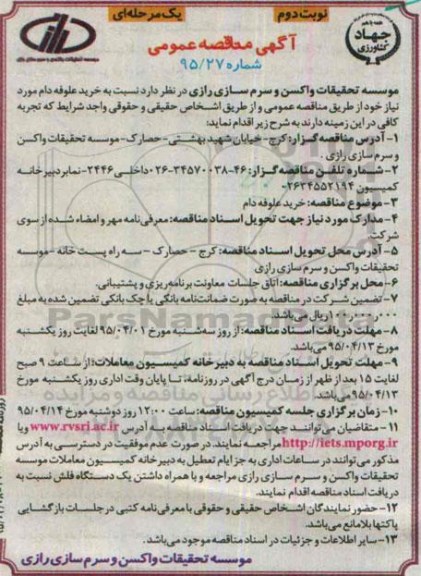 نوبت دوم
یک مرحله‌ای
جهاد
کشاورزی
آگهی مناقصه عمومی
شماره ۹۵/۲۷
موسسه تحقیقات واکسن و سرم سازی رازی
موسسه تحقیقات واکسن و سرم سازی رازی در نظر دارد نسبت به خرید علوفه دام مورد
نیاز خود از طریق مناقصه عمومی و از طریق اشخاص حقیقی و حقوقی واجد شرایط که تجربه
کافی در این زمینه دارند به شرح زیر اقدام نماید:
۱- آدرس مناقصه گزار: کرج - خیابان شهید بهشتی - حصارک - موسسه تحقیقات واکسن
و سرم سازی رازی .
۲- شماره تلفن مناقصه گزار: ۴۶-۳۴۵۷۰۰۳۸-۰۲۶ داخلی ۲۴۴۶- نمابر دبیرخانه
کمیسیون ۲۶۳۴۵۵۲۱۹۴-
۳- موضوع مناقصه: خرید علوفه دام
۴- مدارک مورد نیاز جهت تحویل اسناد مناقصه: معرفی نامه مهر و امضاء شده از سوی
شرکت.
۵- آدرس محل تحویل اسناد مناقصه: کرج - حصارک - سه راه پست خانه - موسسه
تحقیقات واکسن و سرم سازی رازی
۶- محل برگزاری مناقصه: اتاق جلسات معاونت برنامه‌ریزی و پشتیبانی.
۷- تضمین شرکت در مناقصه به صورت ضمانت‌نامه بانکی یا چک بانکی تضمین شده به مبلغ
ریال می‌باشد.
۸- مهلت دریافت اسناد مناقصه: از روز سه‌شنبه مورخ ۹۵/۰۴/۰۱ لغایت روز یکشنبه
مورخ ۹۵/۰۴/۱۳ می‌باشد.
۹- مهلت تحویل اسناد مناقصه به دبیرخانه کمیسیون معاملات: از ساعت ۹ صبح
لغایت ۱۵ بعد از ظهر از زمان درج آگهی در روزنامه، تا پایان وقت اداری روز یکشنبه مورخ
۹۵/۰۴/۱۳ می‌باشد.
۱۰- زمان برگزاری جلسه کمیسیون مناقصه: ساعت ۱۲:۰۰ روز دوشنبه مورخ ۹۵/۰۴/۱۴
۱۱- متقاضیان می‌توانند جهت دریافت اسناد مناقصه به آدرس www.rvsri.ac.ir و یا
http://iets.mporg.ir مراجعه نمایند. در صورت عدم موفقیت در دسترسی به آدرس
مذکور می توانند در ساعات اداری به جز ایام تعطیل به دبیرخانه کمیسیون معاملات موسسه
تحقیقات واکسن و سرم سازی رازی مراجعه و با همراه داشتن یک دستگاه فلش نسبت به
دریافت اسناد مناقصه اقدام نمایند.
۱۲- حضور نمایندگان اشخاص حقیقی و حقوقی با معرفی نامه کتبی در جلسات بازگشایی
پاکتها بلامانع می‌باشد.
۱۳- سایر اطلاعات و جزئیات در اسناد مناقصه موجود می‌باشد.
موسسه تحقیقات واکسن و سرم سازی رازی